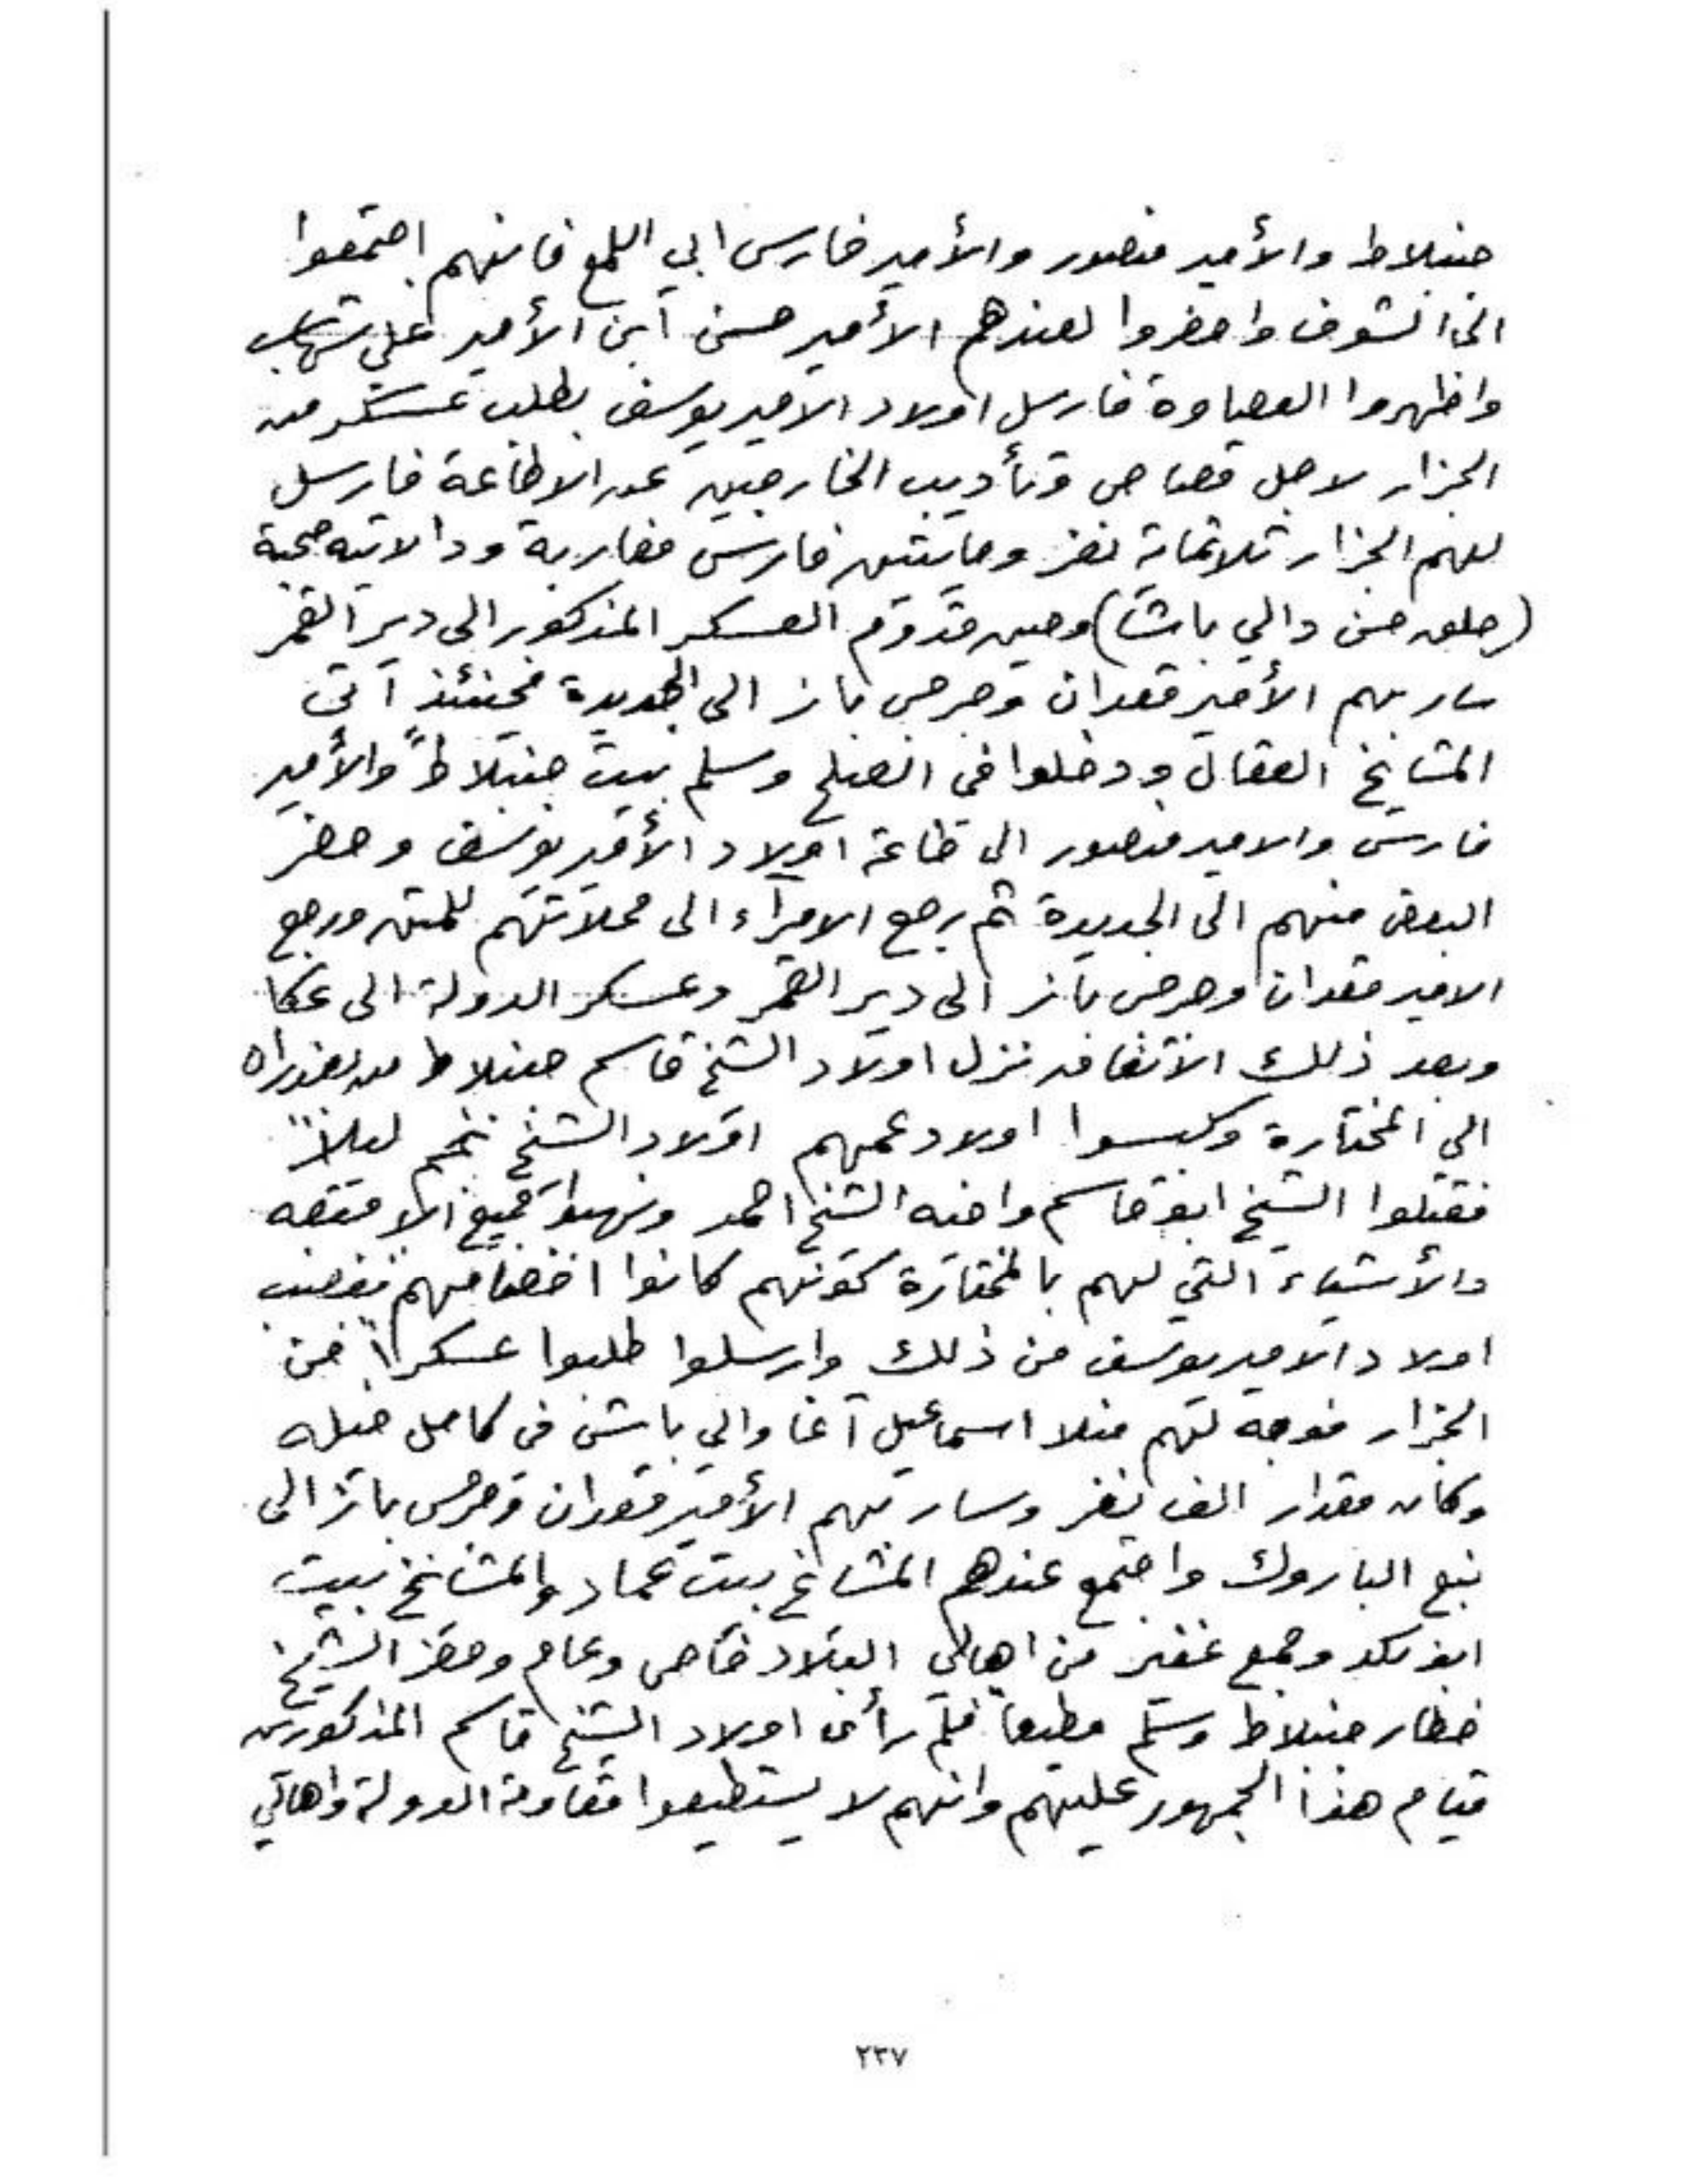 جنبلاط والأمير منصور والأمير فارس ابي اللمع فانهم اجتمعوا
الى الشوف واحضروا لعندهم الأمير حسن ابن الأمير علي شهاب
واظهروا العصاوة فارسل اولاد الامير يوسف بطلب عسكر من
الجزار لاجل قصاص وتأديب الخارجين عن الاطاعة فارسل
لهم الجزار ثلاثماية نفر ومايتين فارس مغاربة ودالاتيه صحبة
حسن دالي باشا) وحين قدوم العسكر المذكور الى دير القمر
سار بهم الأمير قعدان وجرجس باز الى الجديدة فحينئذ آتى
المشايخ العقال ودخلوا في الصلح وسلم بيت جنبلاط والأمير
فارس والامير منصور الى طاعة اولاد الأمير يوسف وحضر
البعض منهم الى الجديدة ثم رجع الامراء الى محلاتهم للمتن ورجع
الامير قعدان وجرجس باز الى دير القمر وعسكر الدولة الى عكا
وبعد ذلك الاتفاق نزل اولاد الشيخ قاسم جنبلاط من
الى المختارة وكبسوا اولاد عمهم اولاد الشيخ نجم ليلاً
فقتلوا الشيخ ابو قاسم واخيه الشيخ احمد ونهبوا جميع الامتعه
والأشياء التي لهم بالمختارة كونهم كانوا اخصامهم فغضب
اولاد الامير يوسف من ذلك وارسلوا طلبوا عسكراً من
الجزار فوجه لهم منلا اسماعيل آغا دالي باش في كامل خيله
وكان مقدار الف نفر وسار بهم الأمير قعدان وجرجس باز الى
نبع الباروك واجتمع عندهم المشايخ بيت عماد والمشايخ بيت
ابو نكد وجمع غفير من اهالي البلاد خاص وعام وحضر الشيخ
خطار جنبلاط وسلم مطيعاً فلم رأى اولاد الشيخ قاسم المذكورين
قيام هذا الجمهور عليهم وانهم لا يستطيعوا مقاومة الدولة واهالي
٢٣٧